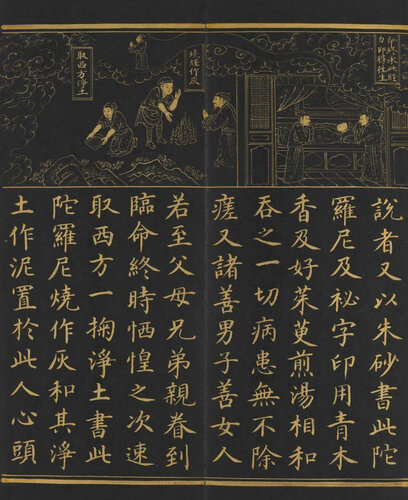 終承此經
力即得往生
燒經作灰
取西方淨土
說者又以朱砂書此陀
羅尼及祕字印用青木
香及好茱萸煎湯相和
吞之一切病患無不除
瘥又諸善男子善女人
若至父母兄弟親眷到
臨命終時恓惶之次速
取西方一掬淨土書此
陀羅尼燒作灰和其淨
土作泥置於此人心頭